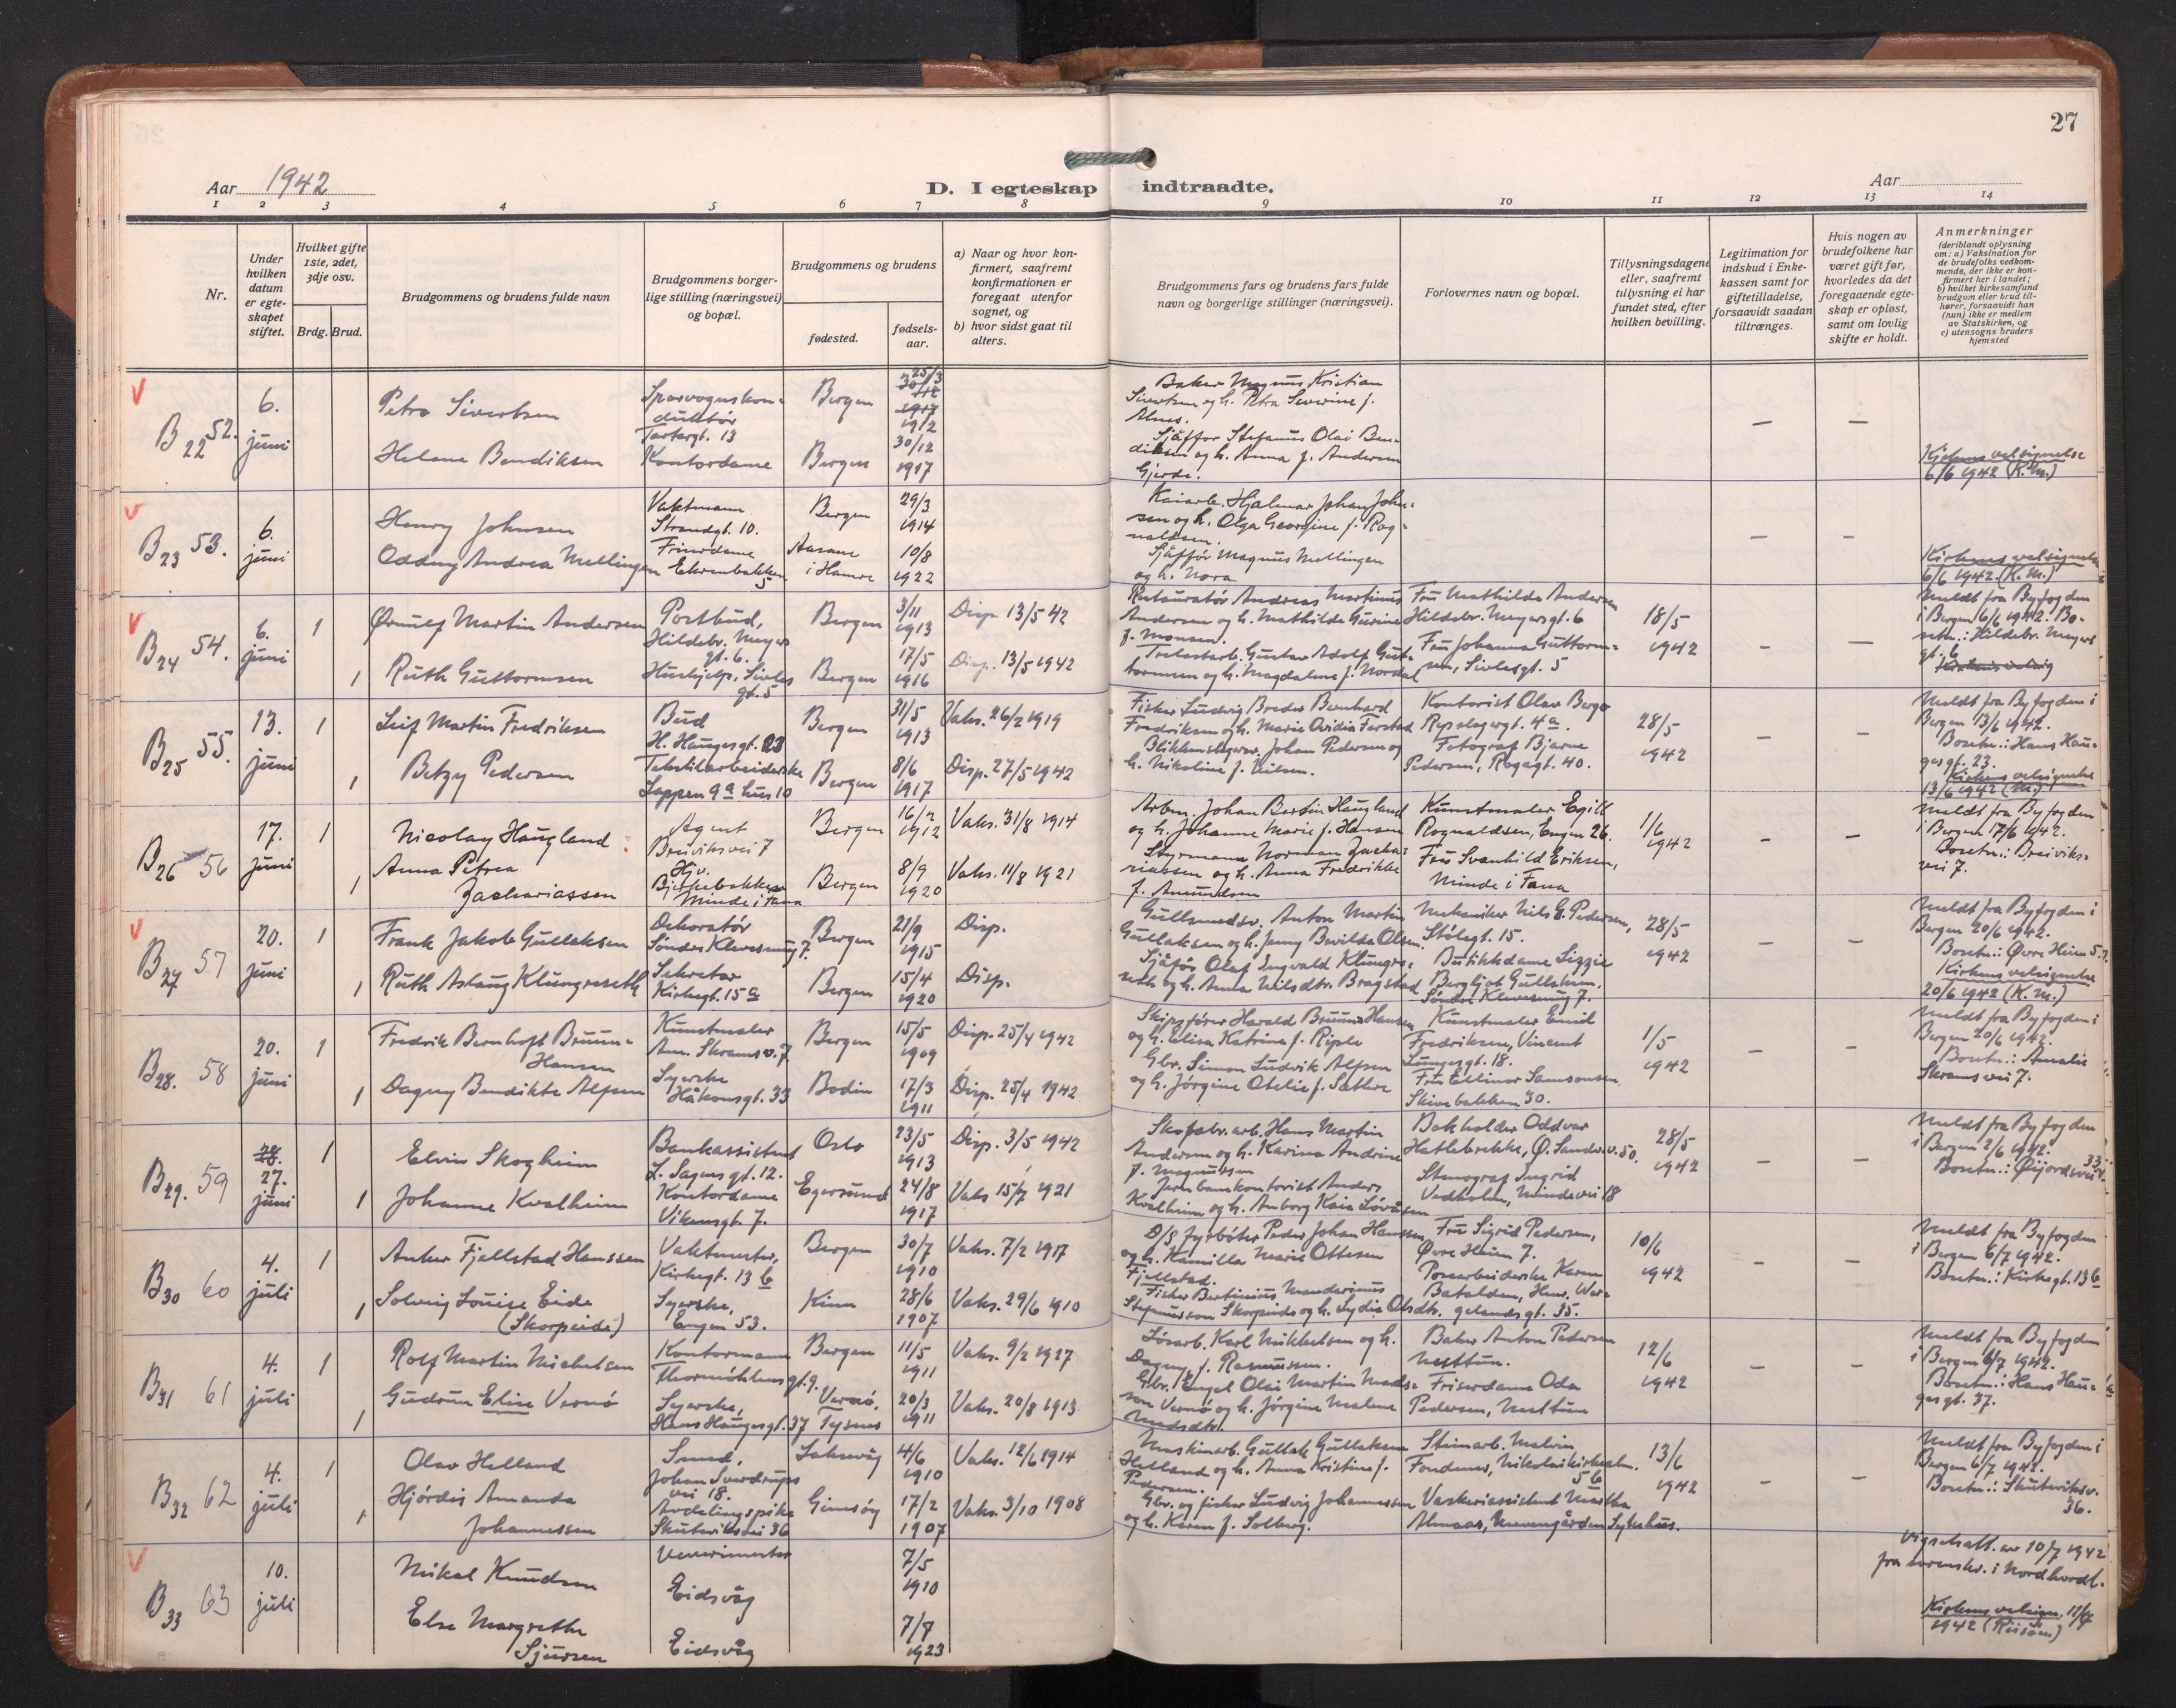 27
Aar 1942
D. I egteskap indtraadte.
Aar
1 2 3 4 5 6 7 8 9 10 11 12 13 14
Nr.
Under hvilken datum er egteskapet stiftet.
Hvilket gifte 1ste, 2det, 3dje osv.
Brdg. Brud.
Brudgommens og brudens fulde navn
Brudgommens borgerlige stilling (næringsvei) og bopæl.
Brudgommens og brudens
fødested.
fødselsaar.
a) Naar og hvor konfirmert, saafremt konfirmationen er foregaat utenfor sognet, og
b) hvor sidst gaat til alters.
Brudgommens fars og brudens fars fulde navn og borgerlige stillinger (næringsvei).
Forlovernes navn og bopæl.
Tillysningsdagene eller, saafremt tillysning ei har fundet sted, efter hvilken bevilling.
Legitimation for indskud i Enkekassen samt for giftetilladelse, forsaavidt saadan tiltrænges.
Hvis nogen av brudefolkene har været gift før, hvorledes da det foregaaende egteskap er opløst, samt om lovlig skifte er holdt.
Anmerkninger
(deriblandt oplysning om: a) Vaksination for de brudefolks vedkommende, der ikke er konfirmert her i landet; b) hvilket kirkesamfund brudgom eller brud tilhører, forsaavidt han (hun) ikke er medlem av Statskirken, og c) utensogns bruders hjemsted
B22 52. 6. juni
Sivertsen
Sporvognskonduktør
13
Bergen
25/3
1912
Baker Magnus Kristian
Sivertsen og h. Petra Severine f.
Helene Bendiksen
Kontordame
Bergen
30/12
1917
Stefanus Olai Bendiksen og h. Anna f. Andersen
Gjerde.
Kirkens velsignelse
6/6 1942 (K.M.)
B23 53. 6. juni
Henry Johnsen
Vaktmann
Strandgt. 10.
Bergen
29/3
1914
Kaiarb. Hjalmar Johan Johnsen og h. Olga Georgine f. Rognaldsen.
Oddny Andrea Mellingen
Frisørdame
5
Aasane
i Hamre
10/8
1922
Sjåffør Magnus Mellingen
og h. Nora
Kirkens velsignelse
6/6 1942. (K.M.)
B24 54. 6. juni
1
Ørnulf Martin Andersen
Postbud,
Hildebr. Meyers
gt. 6.
Bergen
3/11
1913
Disp. 13/5 42
Restauratør Andreas Martinus
Andersen og h. Mathilde Gurine
f. Monsen.
Fru Mathilde Andersen
Hildebr. Meyersgt. 6
18/5
1942
1
Ruth Guttormsen
Hushjelp, Sivles
gt. 5
Bergen
17/5
1916
Disp. 13/5 1942
Gustav Adolf Guttormsen og h. Magdalene f. Nordal
Fru Johanna Guttormsen, Sivlesgt. 5
Meldt fra Byfogden
i Bergen 6/6 1942. Bosetn.: Hildebr. Meyers
gt. 6
B25 55. 13. juni
1
Leif Martin Fredriksen
Bud
H. Haugesgt. 23
Bergen
31/5
1913
Vaks. 26/2 1919
Fisker Ludvig Breder Bernhard
Fredriksen og h. Marie Ovidia Farstad
Kontorist Olav Berge
Repslagergt. 4a.
28/5
1942
1
Betzy Pedersen
Tekstilarbeiderske
Lappen 9a hus 10
Bergen
8/6
1917
Disp. 27/5 1942
Blikkenslagersv. Johan Pedersen og
h. Nikoline f. Nilsen.
Fotograf Bjarne
Pedersen, Rogagt. 40.
Meldt fra Byfogden i
Bergen 13/6 1942.
Bosetn.: Hans Haugesgt. 23.
Kirkens velsignelse
13/6 1942 (M.)
B26 56 17. juni
1
Nicolay Haugland
Agent
Breiviksvei 7
Bergen
16/12
1912
Vaks. 31/8 1914
Arbm. Johan Bertin Haugland
og h. Johanne Marie f. Hansen
Kunstmaler Egill
Rognaldsen, Engen 26.
1/6
1942
1
Anna Petrea
Zachariassen
Hjv.
Bjerkebakken
Minde i Fana
Bergen
8/9
1920
Vaks. 11/8 1921
Styrmann Norman Zachariassen og h. Anna Fredrikke
f. Amundsen
Fru Svanhild Eriksen,
Minde i Fana
Meldt fra Byfogden
i Bergen 17/6 1942.
Bosetn.: Breiviksvei 7.
B27 57 20. juni
1
Frank Jakob Gullaksen
Dekoratør
Søndre Kleivesmug 7.
Bergen
21/9
1915
Disp.
Gullsmedsv. Anton Martin
Gullaksen og h. Jenny Bevilda Olsen.
Mekaniker Nils G. Pedersen,
Stølegt. 15.
28/5
1942
1
Ruth Aslaug Klungreseth
Sekretær
Kirkegt. 15a
Bergen
15/4
1920
Disp.
Sjåfør Olaf Ingvald Klungreseth og h. Anna Nilsdtr. Bragstad
Butikkdame Lizzie
Bergljot Gullaksen,
Søndre Kleivesmug 7.
Meldt fra Byfogden i
Bergen 20/6 1942.
Bosetn.: Øvre Heien 5
Kirkens velsignelse
20/6 1942 (K.M.)
B28. 58 20. juni
1
Fredrik Bernhoft Bruun-
Hansen
Kunstmaler
Am. Skramsv. 7
Bergen
15/5
1909
Disp. 25/4 1942
Skipsfører Harald Bruun-Hansen
og h. Elisa Katrine f. Riple
Kunstmaler Emid
Fredriksen, Vincent
Lungesgt. 18.
1/5
1942
1
Dagny Bendikte Alfsen
Syerske
Håkonsgt. 33
Bodin
17/3
1911
Disp. 25/4 1942
Gbr. Simon Ludvik Alfsen
og h. Jørgine Otelie f. Sæthre
Fru Ellinor Samsonsen
Skivebakken 30.
Meldt fra Byfogden i
Bergen 20/6 1942.
Bosetn.: Amalie
Skramsvei 7.
B29. 59 27. juni
1
Elvin Skogheim
Bankassistent
L. Sagensgt. 12.
Oslo
23/5
1913
Disp. 3/5 1942
Skofabr.arb. Hans Martin
Andersen og h. Karina Andrine
f. Magnussen
Bokholder Oddvar
Hatlebrekke, Ø. Sandsv. 50.
28/5
1942
1
Johanne Kvalheim
Kontordame
Vikensgt. 7.
Egersund
24/8
1917
Vaks 15/7 1921
Jernbanekontorist Anders
Kvalheim og h. Anborg Kaia Løvåsen
Stenograf Ingrid
Vedholm, Mindevei 18
Meldt fra Byfogden
i Bergen 2/6 1942.
Bosetn.: 33
B30 60 4. juli
1
Anker Fjellstad Hanssen
Vaktmester,
Kirkegt. 13 b
Bergen
30/7
1910
Vaks. 7/2 1917
D/S fyrbøter Peder Johan Hanssen
og h. Kamilla Marie Ottesen
Fjellstad.
Fru Sigrid Pedersen,
Øvre Heien 7.
10/6
1942
1
Solveig Louise Eide
(Skorpeide)
Syerske,
Engen 53.
Kinn
28/6
1907
Vaks. 29/6 1910
Fisker Bertinius Mandarinus
Stefanusson Skorpeide og h. Lydia Olsdtr.
Posearbeiderske Karen
Batalden, Henr. Wergelandsgt. 35.
Meldt fra Byfogden
i Bergen 6/7 1942.
Bosetn.: Kirkegt. 13 b
B31 61 4. juli
1
Rolf Martin Michelsen
Kontormann
Thormøhlensgt. 9.
Bergen
11/5
1911
Vaks. 9/2 1927
Løsarb. Karl Mikkelsen og h.
Dagny, f. Rasmussen.
Baker Anton Pedersen
Nesttun.
12/6
1942
1
Gudrun Elise Vernø
Syerske,
Hans Haugesgt. 37
Vernø,
Tysnes
20/3
1911
Vaks. 20/8 1913
Gbr. Engel Olai Martin Madsson Vernø og h. Jørgine Malene
Madsdtr.
Frisørdame Oda
Pedersen, Nesttun
Meldt fra Byfogden
i Bergen 6/7 1942.
Bosetn.: Hans Haugesgt. 37.
B32 62 4. juli
1
Olav Helland
Smed,
Johan Sverdrups
vei 18.
Laksevåg
4/6
1910
Vaks. 12/6 1914
Maskinarb. Gullak Gullaksen
Helland og h. Anna Kristine f.
Pedersen.
Steinarb. Malvin
Fondenes, Nikolaikirkealm.
5 b
13/6
1942
1
Hjørdis Amanda
Johannessen
Avdelingspike
Skuteviksvei 36
Gimsøy
17/2
1907
Vaks. 3/10 1908
Gbr. og fisker Ludvig Johannessen
og h. Karen f. Solberg.
Vaskeriassistent Martha
Almaas, Neevengården Sykehus.
Meldt fra Byfogden i
Bergen 6/7 1942.
Bosetn.: Skuteviksv.
36.
B33 63 10. juli
Mikal Knudsen
Eidsvåg
7/5
1910
Else Margrethe
Sjursen
Eidsvåg
7/7
1923
Vigselsatt. av 10/7 1942
fra sorenskr. i Nordhordl.
Kirkens velsign. 11/7
1942 (Riisøen)